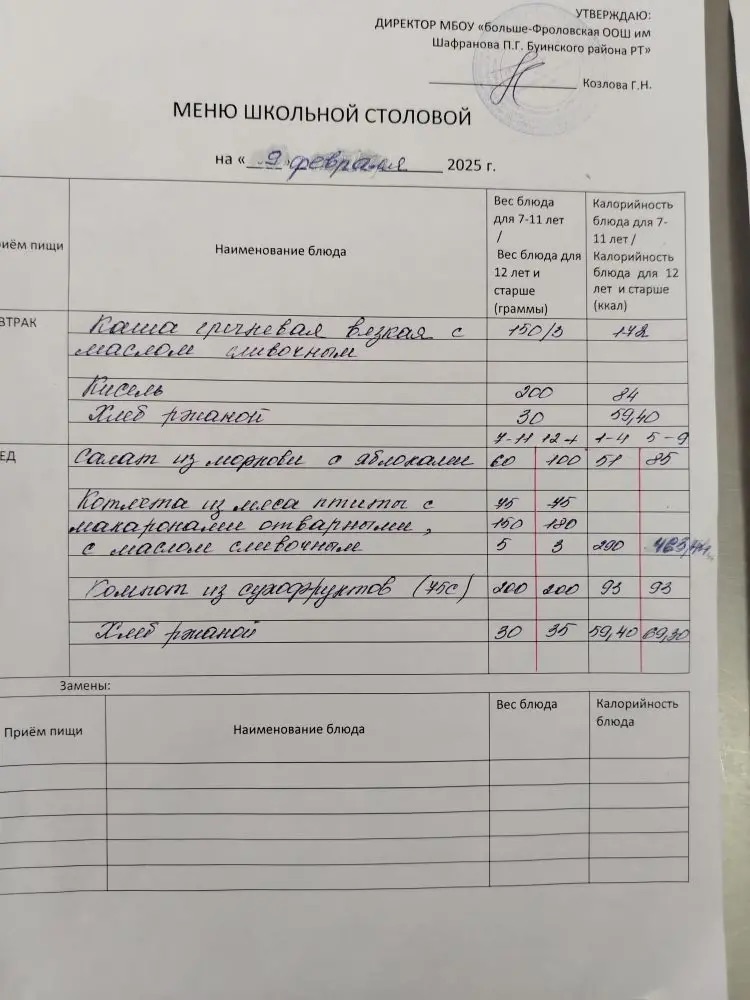 УТВЕРЖДАЮ:
ДИРЕКТОР МБОУ «больше-Фроловская ООШ им
Шафранова П.Г. Буинского района РТ»
Козлова Г.Н.
МЕНЮ ШКОЛЬНОЙ СТОЛОВОЙ
на « 9 февраля 2025 г.
иём пищи
Наименование блюда
Вес блюда
для 7-11 лет
/
Вес блюда для
12 лет и
старше
(граммы)
Калорийность
блюда для 7-
11 лет /
Калорийность
блюда для 12
лет и старше
(ккал)
ВТРАК
Каша гречневая вязкая с 150/3 172
маслом сливочным
Кисель 200 84
Хлеб ржаной 30 59,40
7-11 12+ 1-4 5-9
ЕД
Салат из моркови с яблоками 60 100 51 85
Котлета из мяса птицы с 75 75
макаронами отварными, 150 180
с маслом сливочным 5 3 290
Компот из сухофруктов (75С) 200 200 93 93
Хлеб ржаной 30 35 59,40 69,30
Замены:
Приём пищи
Наименование блюда
Вес блюда
Калорийность
блюда